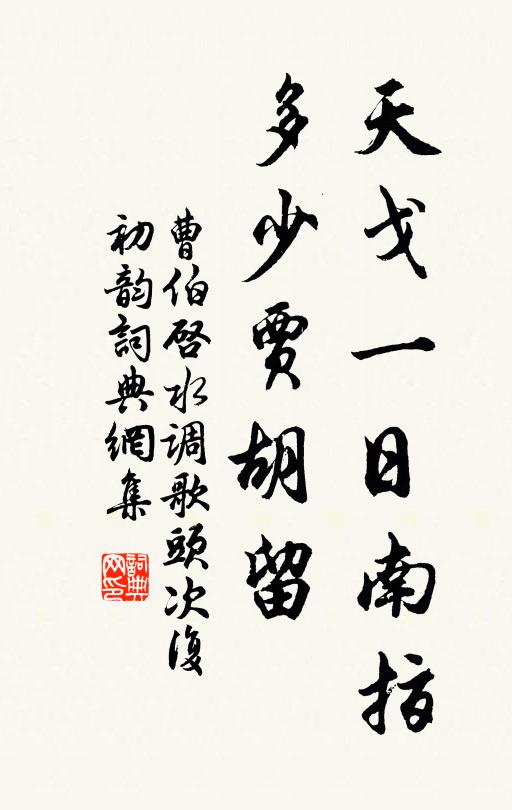 天戈一日南指
多少賈胡留
曹伯啓水调歌頭次復
初韵詞典網集
詞典网印